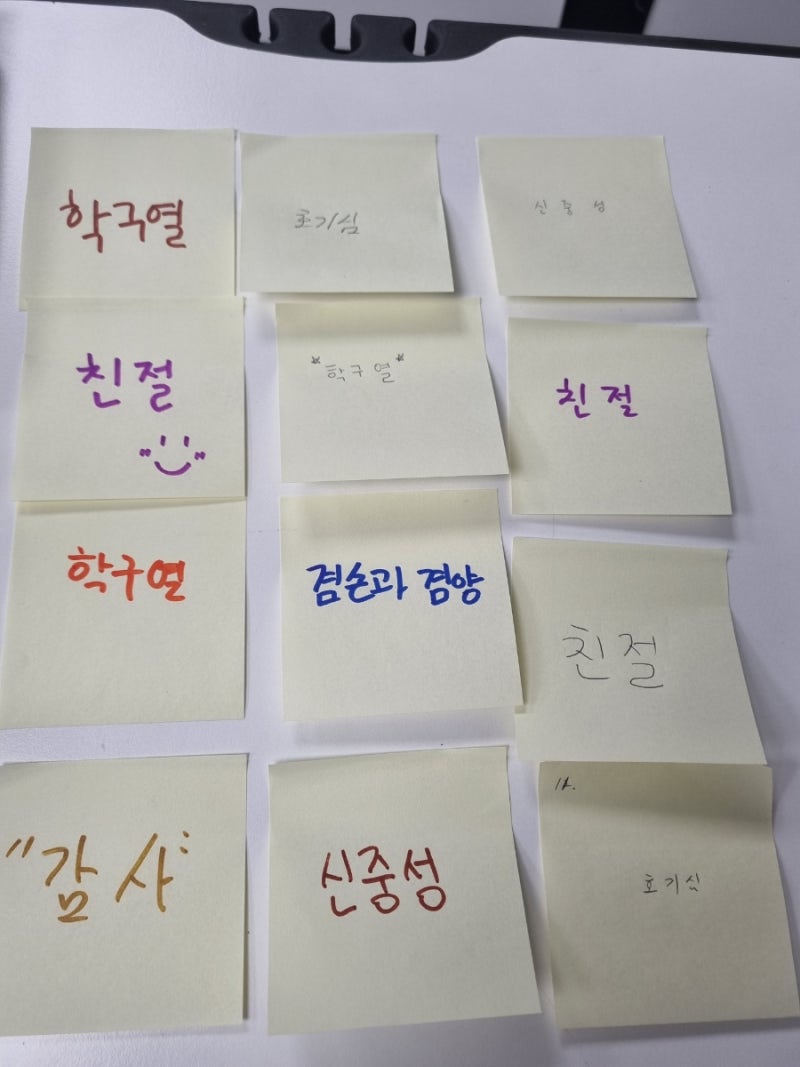 학구열
호기심
신중성
친절
*학구열*
친절
학구열
겸손과 겸양
친절
"감사"
신중성
호기심